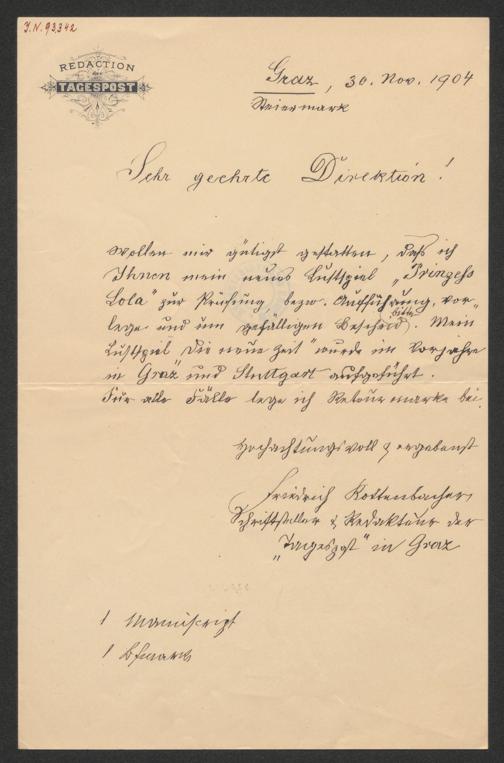 I.N. 93.342
REDACTION
der
TAGESPOST
Graz, 30. Nov. 1904
Steiermark
Sehr geehrte Direktion!
Wollen mir gütigst gestatten, daß ich
Ihnen mein neues Lustspiel „Prinzeß
Lola" zur Prüfung, bezw. Aufführung, vor-
lege und um gefälligen Bescheid bitte. Mein
Lustspiel „Die neue Zeit" wurde im Vorjahre
in Graz und Stuttgart aufgeführt.
Für alle Fälle lege ich Retourmarke bei.
Hochachtungsvoll & ergebenst
Friedrich Rottenbacher,
Schriftsteller & Redakteur der
„Tagespost" in Graz
1 Manuscript
1